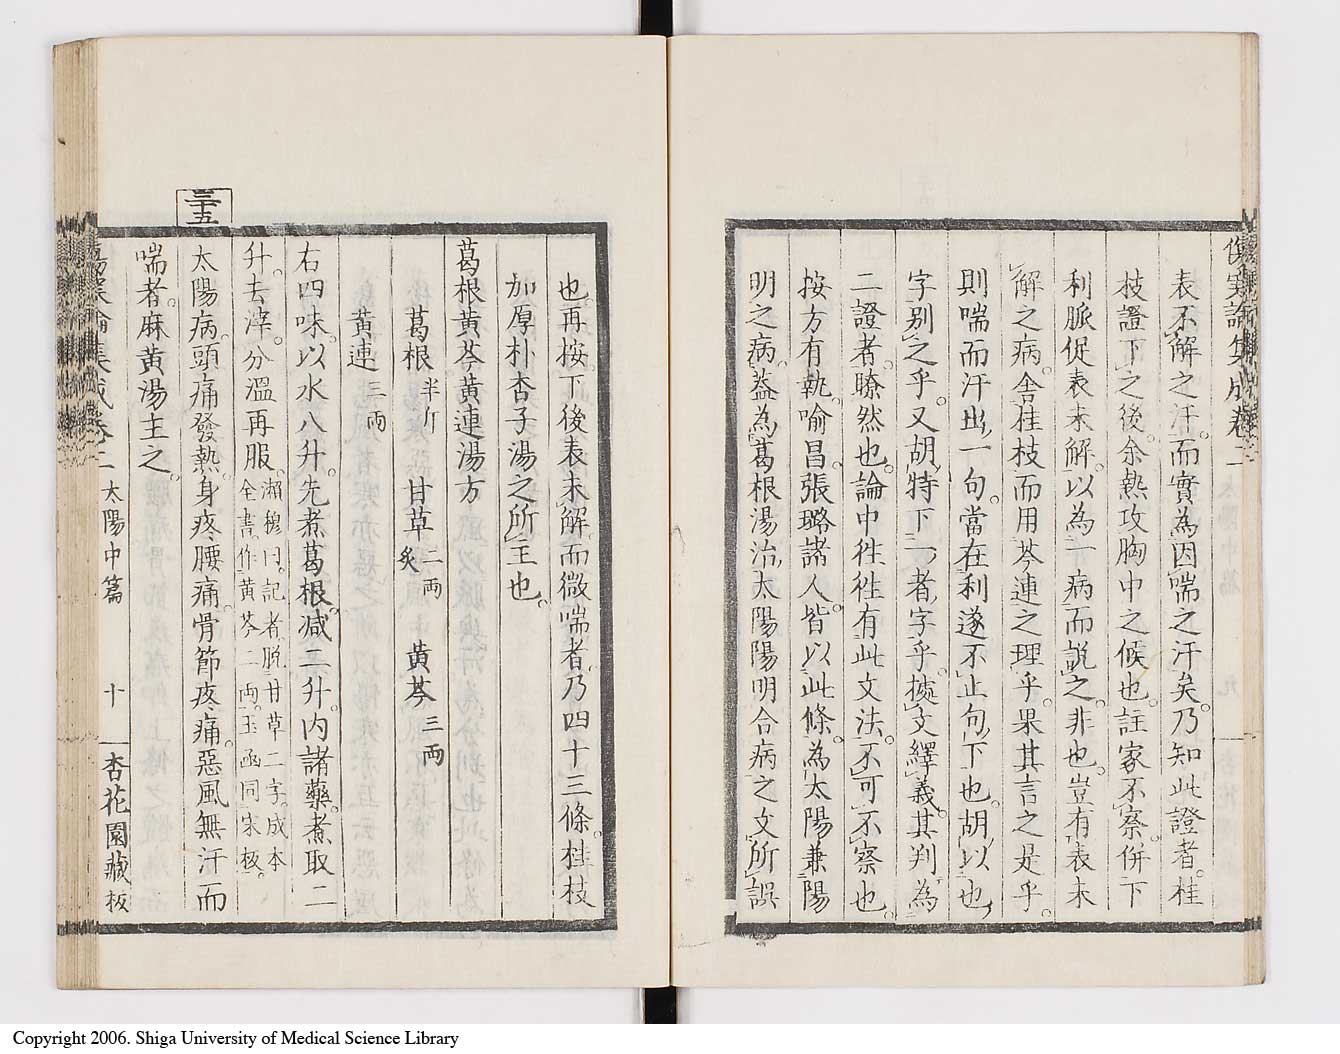 傷寒論集成卷二
表不解之汗而實為因喘之汗矣乃知此證者桂
枝證下之後余熱攻胸中之候也註家不察併下
利脈促表未解以為一病而說之非也豈有表未
解之病舍桂枝而用芩連之理乎果其言之是乎
則喘而汗出一句當在利遂不止句下也胡以也
字別之乎又胡特下一者字乎據文繹義其判為
二證者瞭然也論中往往有此文法不可不察也
按方有執喻昌張璐諸人皆以此條為太陽兼陽
明之病蓋為葛根湯治太陽陽明合病之文所誤
也再按下後表未解而微喘者乃四十三條桂枝
加厚朴杏子湯之所主也
葛根黃芩黃連湯方
葛根半斤 甘草二兩炙 黃芩三兩
黃連三兩
右四味以水八升先煮葛根減二升內諸藥煮取二
升去滓分溫再服瀨穆曰記者脫甘草二字成本全書作黃芩二兩玉函同宋板
三十五
太陽病頭痛發熱身疼腰痛骨節疼痛惡風無汗而
喘者麻黃湯主之
傷寒論集成卷二 太陽中篇 十 杏花園藏板
Copyright 2006. Shiga University of Medical Science Library